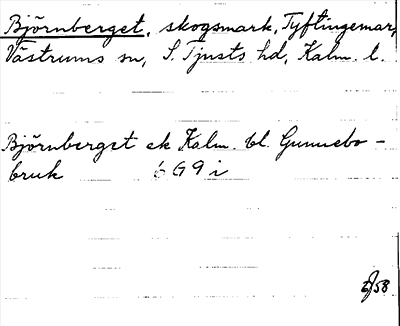 Björnberget, skogsmark, Tyftingemar,
Västrums sn, S. Tjusts hd, Kalm. l.
Björnberget ek Kalm. bl. Gunnebo-
bruk 6 G 9 i